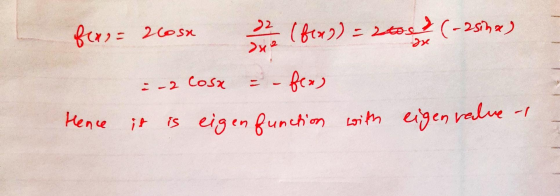 f(x) = 2cosx ∂2/∂x² (f(x)) = ∂/∂x (-2sinx)
= -2 cosx = - f(x)
Hence it is eigen function with eigen value -1